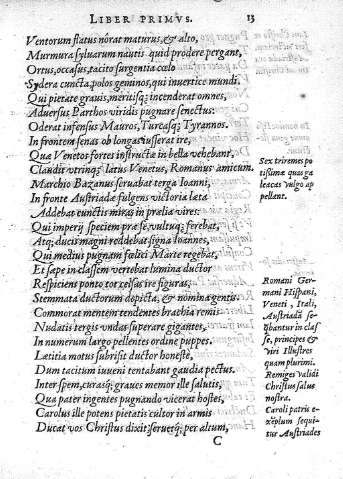 LIBER PRIMVS. 13
Ventorum flatus norat maturus, & alto,
Murmura syluarum nautis quid prodere pergant,
Ortus, occasus, tacito surgentia cœlo
Sydera cuncta, polos geminos, qui invertice mundi,
Qui pietate grauis, meritisq; incenderat omnes,
Aduersus Parthos viridis pugnare senectus:
Oderat infensus Mauros, Turcasq; Tyrannos.
In frontem senas ob longas iusserat ire,
Quæ Venetos fortes instructæ in bella vehebant,
Claudit vtrinq; latus Venetus, Romanus amicum.
Marchio Bazanus seruabat terga Ioanni,
In fronte Austriadæ fulgens victoria læta
Addebat cunctis miras in prælia vires:
Qui imperij speciem præ se, vultuq; ferebat,
Atq; ducis magni reddebat signa Ioannes,
Qui medius pugnam fœlici Marte regebat,
Et sæpe in classem vertebat lumina ductor
Respiciens ponto tot celsas ire figuras,
Stemmata ductorum depicta, & nomina gentis.
Commorat mentem tendentes brathia remis
Nudatis tergis vndas superare gigantes,
In numerum largo pellentes ordine puppes.
Lætitia motus subrisit ductor honestè,
Dum tacitum iuueni tentabant gaudia pectus.
Inter spem, curasq; graues memor ille salutis,
Qua pater ingentes pugnando vicerat hostes,
Carolus ille potens pietatis cultor in armis
Ducat vos Christus dixit seruetq; per altum,
C
Sex triremes po
tissimæ quas ga
leacas vulgo ap
pellant.
Romani Ger
mani Hispani,
Veneti, Itali,
Austriadã se
q̃bantur in clas
se, principes &
viri Illustres
quam plurimi.
Remiges validi
Christus salus
nostra.
Caroli patris e-
xẽplum sequi-
tur Austriades